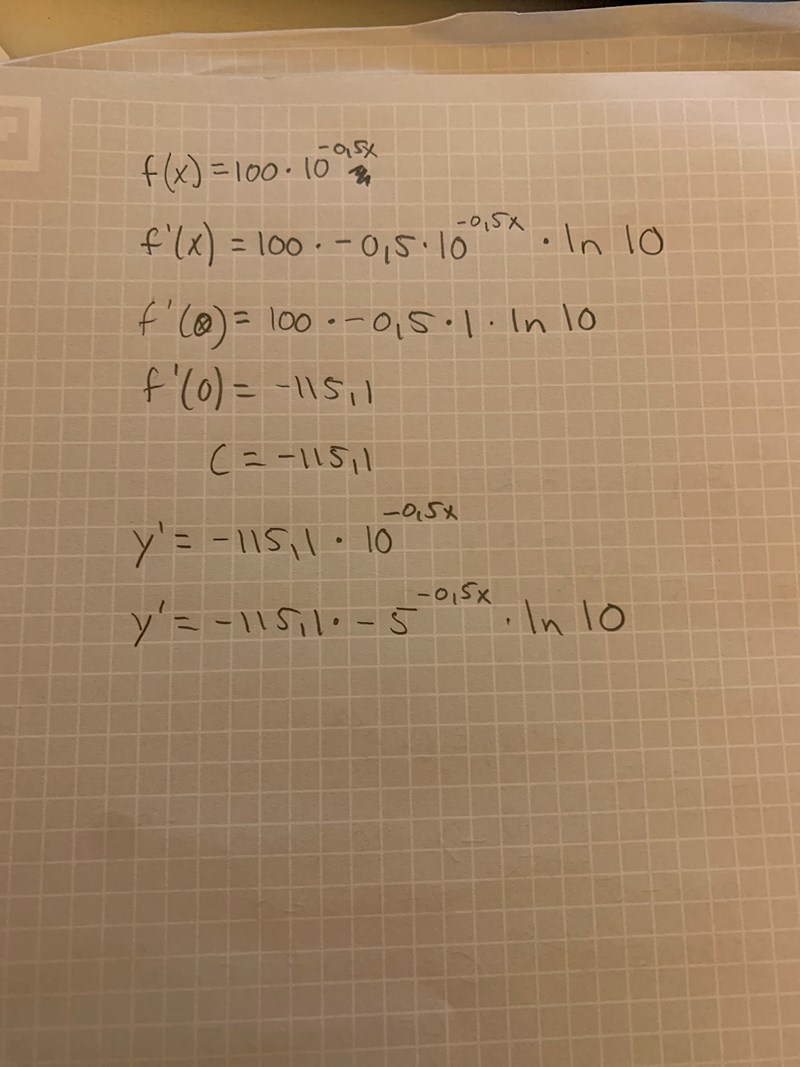 f(x) = 100 · 10^-0,5x
f'(x) = 100 · -0,5 · 10^-0,5x · ln 10
f'(0) = 100 · -0,5 · 1 · ln 10
f'(0) = -115,1
C = -115,1
y' = -115,1 · 10^-0,5x
y' = -115,1 · -5^-0,5x · ln 10